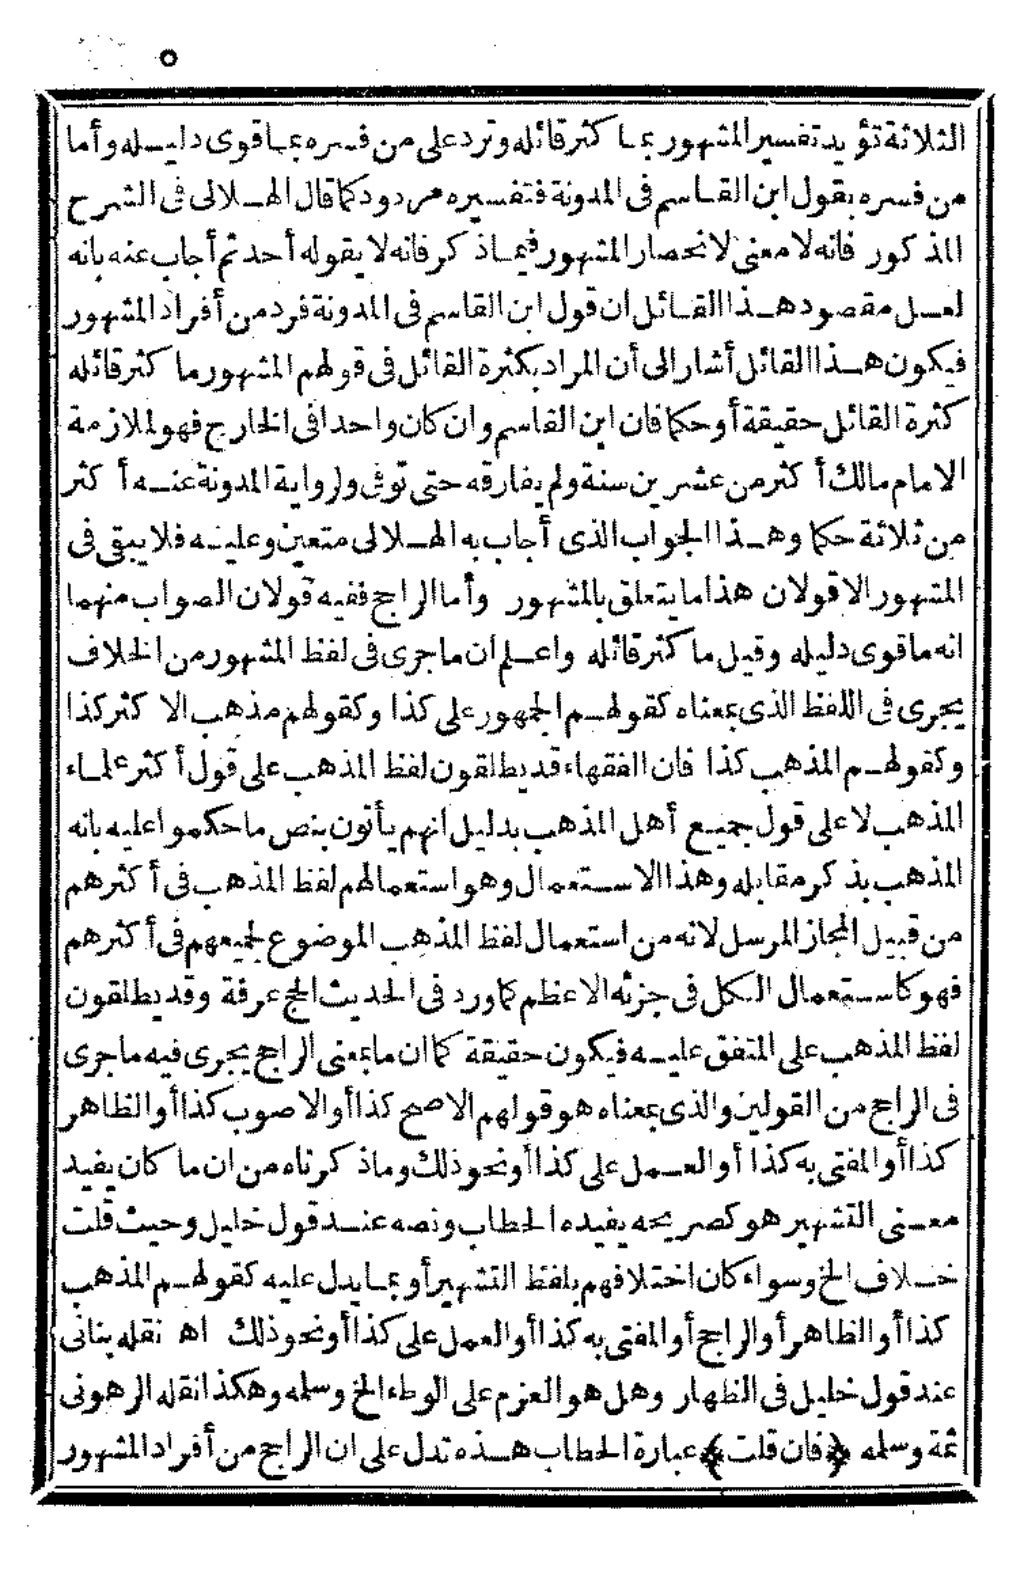 ٥
الثلاثة تؤيد تفسير المشهور بما كثر قائله وترد على من فسره بما قوى دليله وأما
من فسره بقول ابن القاسم فى المدونة فتفسيره مردود كما قال الهلالى فى الشرح
المذكور فانه لا معنى لانحصار المشهور فيما ذكر فانه لا يقوله أحد ثم أجاب عنه بانه
لعل مقصود هذا القائل ان قول ابن القاسم فى المدونة فرد من أفراد المشهور
فيكون هذا القائل أشار الى أن المراد بكثرة القائل فى قولهم المشهور ما كثر قائله
كثرة القائل حقيقة أو حكما فان ابن القاسم وان كان واحدا فى الخارج فهو لملازمة
الامام مالك أكثر من عشرين سنة ولم يفارقه حتى توفى ولرواية المدونة عنه أكثر
من ثلاثة حكما وهذا الجواب الذى أجاب به الهلالى متعين وعليه فلا يبقى فى
المشهور الا قولان هذا ما يتعلق بالمشهور وأما الراجح ففيه قولان الصواب منهما
انه ما قوى دليله وقيل ما كثر قائله واعلم ان ما جرى فى لفظ المشهور من الخلاف
يجرى فى اللفظ الذى بمعناه كقولهم الجمهور على كذا وكقولهم مذهب الاكثر كذا
وكقولهم المذهب كذا فان الفقهاء قد يطلقون لفظ المذهب على قول أكثر علماء
المذهب لا على قول جميع أهل المذهب بدليل انهم يأتون بنص ما حكموا عليه بانه
المذهب بذكر مقابله وهذا الاستعمال وهو استعمالهم لفظ المذهب فى أكثرهم
من قبيل المجاز المرسل لانه من استعمال لفظ المذهب الموضوع لجميعهم فى أكثرهم
فهو كاستعمال الكل فى جزئه الاعظم كما ورد فى الحديث الحج عرفة وقد يطلقون
لفظ المذهب على المتفق عليه فيكون حقيقة كما ان ما بمعنى الراجح يجرى فيه ما جرى
فى الراجح من القولين والذى بمعناه هو قولهم الاصح كذا أو الاصوب كذا أو الظاهر
كذا أو المفتى به كذا أو العمل على كذا أو نحو ذلك وما ذكرناه من ان ما كان يفيد
معنى التشهير هو كصريحه يفيده الحطاب ونصه عند قول خليل وحيث قلت
خلاف الخ وسواء كان اختلافهم بلفظ التشهير أو بما يدل عليه كقولهم المذهب
كذا أو الظاهر أو الراجح أو المفتى به كذا أو العمل على كذا أو نحو ذلك اه نقله بنانى
عند قول خليل فى الظهار وهل هو العزم على الوطء الخ وسلمه وهكذا نقله الرهونى
ثمة وسلمه ﴿فان قلت﴾ عبارة الحطاب هذه تدل على ان الراجح من أفراد المشهور